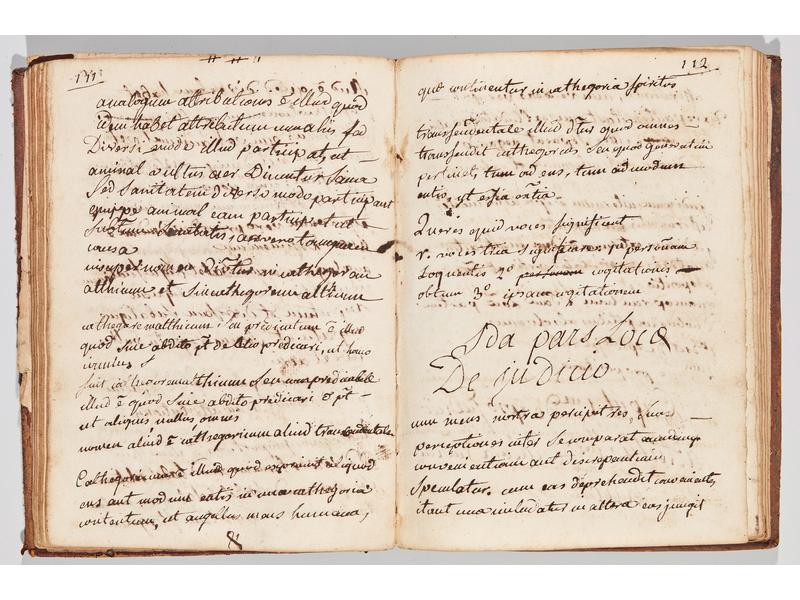 111
analogum attributionis ē illud quod
idem habet attributum cum aliis sed
Diversi mode illud participat, ut
animal cultus aer Dicuntur sana
Sed sanitatem diverso modo participant
quippe animal eam participat ut
subjectum sanitatis, aer vero tanquam
causa
insuper nomen
althicum et Sincathegorem althicum
cathegorematthicum seu predicatum ē illud
quod sine abdito et de alio predicari, ut homo
Sincathegorematthicum seu predicabile
illud ē quod sine abdito predicari ō pt
ut aliquis nullus omnes
nomen aliud ē cathegoricum aliud transcendentale
Cathegoricum ē illud quod exprimit aliquod
ens aut modum entis in una cathegoria
contentum, ut angellus mens humana,
112
quæ continentur in cathegoria spiritus
transcendentale illud dtur quod omnes
transcendit cathegorias seu quod generatim
pertinet, tum ad ens, tum ad modum
entis, ut essentia
Queres quid voces significant
r. voces tria significare: 1o personam
Loquentis 2o cogitationis
obtum 3o ipsam cogitationem
2da pars Logæ
De judicio
cum mens nostra percipit res, suas
perceptiones inter se comparat earumque
convenientiam aut discrepantiam
speculatur, cum eas deprehendit convenientes
itaut una includatur in altera eas jungit